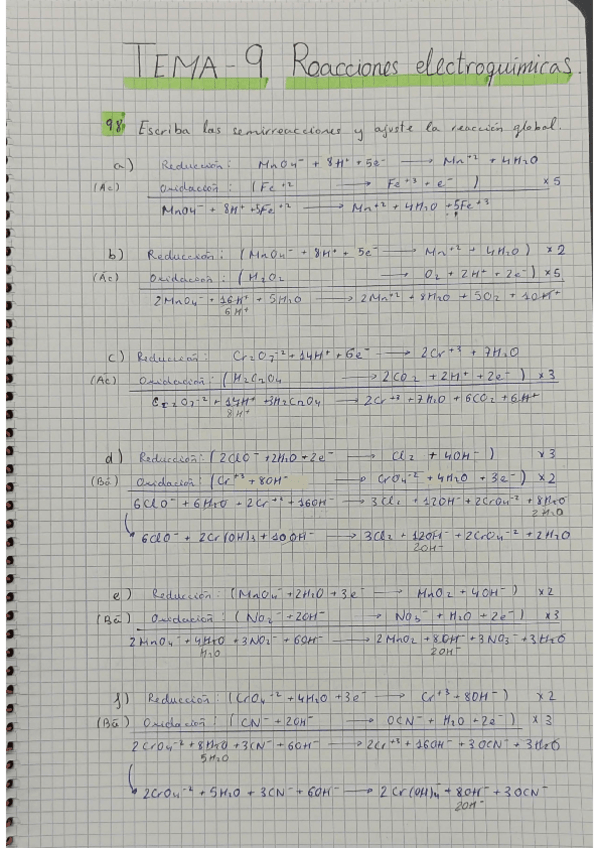 TEMA-9 Reacciones electroquimicas.
9.8. Escriba las semirreacciones y ajuste la reacción global.
a) Reducción: MnO4⁻ + 8H⁺ + 5e⁻ → Mn⁺² + 4H2O
(Ac) Oxidación: (Fe⁺² → Fe⁺³ + e⁻) x5
MnO4⁻ + 8H⁺ + 5Fe⁺² → Mn⁺² + 4H2O + 5Fe⁺³
b) Reducción: (MnO4⁻ + 8H⁺ + 5e⁻ → Mn⁺² + 4H2O) x2
(Ac) Oxidación: (H2O2 → O2 + 2H⁺ + 2e⁻) x5
2MnO4⁻ + 16H⁺ + 5H2O → 2Mn⁺² + 8H2O + 5O2 + 10H⁺
6H⁺
c) Reducción: Cr2O7⁻² + 14H⁺ + 6e⁻ → 2Cr⁺³ + 7H2O
(Ac) Oxidación: (H2C2O4 → 2CO2 + 2H⁺ + 2e⁻) x3
Cr2O7⁻² + 14H⁺ + 3H2C2O4 → 2Cr⁺³ + 7H2O + 6CO2 + 6H⁺
8H⁺
d) Reducción: (2ClO⁻ + 2H2O + 2e⁻ → Cl2 + 4OH⁻) x3
(Bá) Oxidación: (Cr⁺³ + 8OH⁻ → CrO4⁻² + 4H2O + 3e⁻) x2
6ClO⁻ + 6H2O + 2Cr⁺³ + 16OH⁻ → 3Cl2 + 12OH⁻ + 2CrO4⁻² + 8H2O
2H2O
6ClO⁻ + 2Cr(OH)3 + 10OH⁻ → 3Cl2 + 12OH⁻ + 2CrO4⁻² + 2H2O
2OH⁻
e) Reducción: (MnO4⁻ + 2H2O + 3e⁻ → MnO2 + 4OH⁻) x2
(Bá) Oxidación: (NO2⁻ + 2OH⁻ → NO3⁻ + H2O + 2e⁻) x3
2MnO4⁻ + 4H2O + 3NO2⁻ + 6OH⁻ → 2MnO2 + 8OH⁻ + 3NO3⁻ + 3H2O
H2O 2OH⁻
f) Reducción: (CrO4⁻² + 4H2O + 3e⁻ → Cr⁺³ + 8OH⁻) x2
(Bá) Oxidación: (CN⁻ + 2OH⁻ → OCN⁻ + H2O + 2e⁻) x3
2CrO4⁻² + 8H2O + 3CN⁻ + 6OH⁻ → 2Cr⁺³ + 16OH⁻ + 3OCN⁻ + 3H2O
5H2O
2CrO4⁻² + 5H2O + 3CN⁻ + 6OH⁻ → 2Cr(OH)4⁻ + 8OH⁻ + 3OCN⁻
2OH⁻